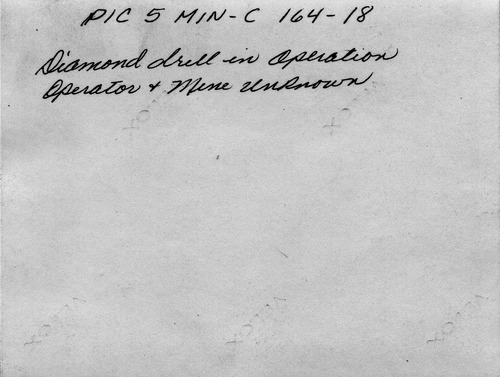 PIC 5 MIN-C 164-18
Diamond drill in Operation
Operator + Mine Unknown